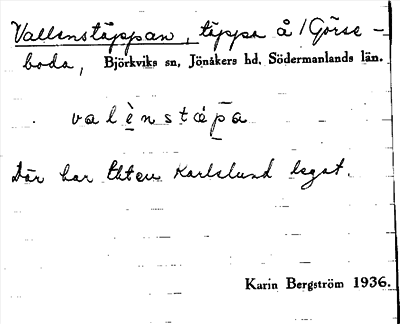 Vallenstäppan, täppa å /Görse-
boda, Björkviks sn, Jönåkers hd, Södermanlands län.
valènstäp̄a
Där har Karlslund legat.
Karin Bergström 1936.